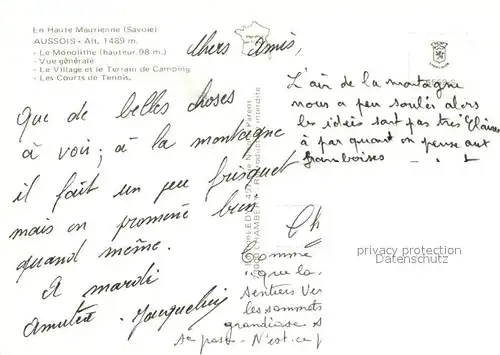 En Haute Maurienne (Savoie)
AUSSOIS - Alt. 1489 m.
- Le Monolithe (hauteur 98 m.)
- Vue générale
- Le Village et le Terrain de Camping
- Les Courts de Tennis.
Chers Amis,
Que de belles choses
à voir ; à la montagne
il fait un peu frisquet
mais on promène bien
quand même.
A mardi
L'air de la montagne
nous a peu soulés alors
les idées sont pas très Claires
à par quand on pense aux
framboises
Reproduction interdite
privacy protection
Datenschutz
Ch
Comme
que la
sentiers Ver
les sommets
grandiose s
se passe - N'est-ce p